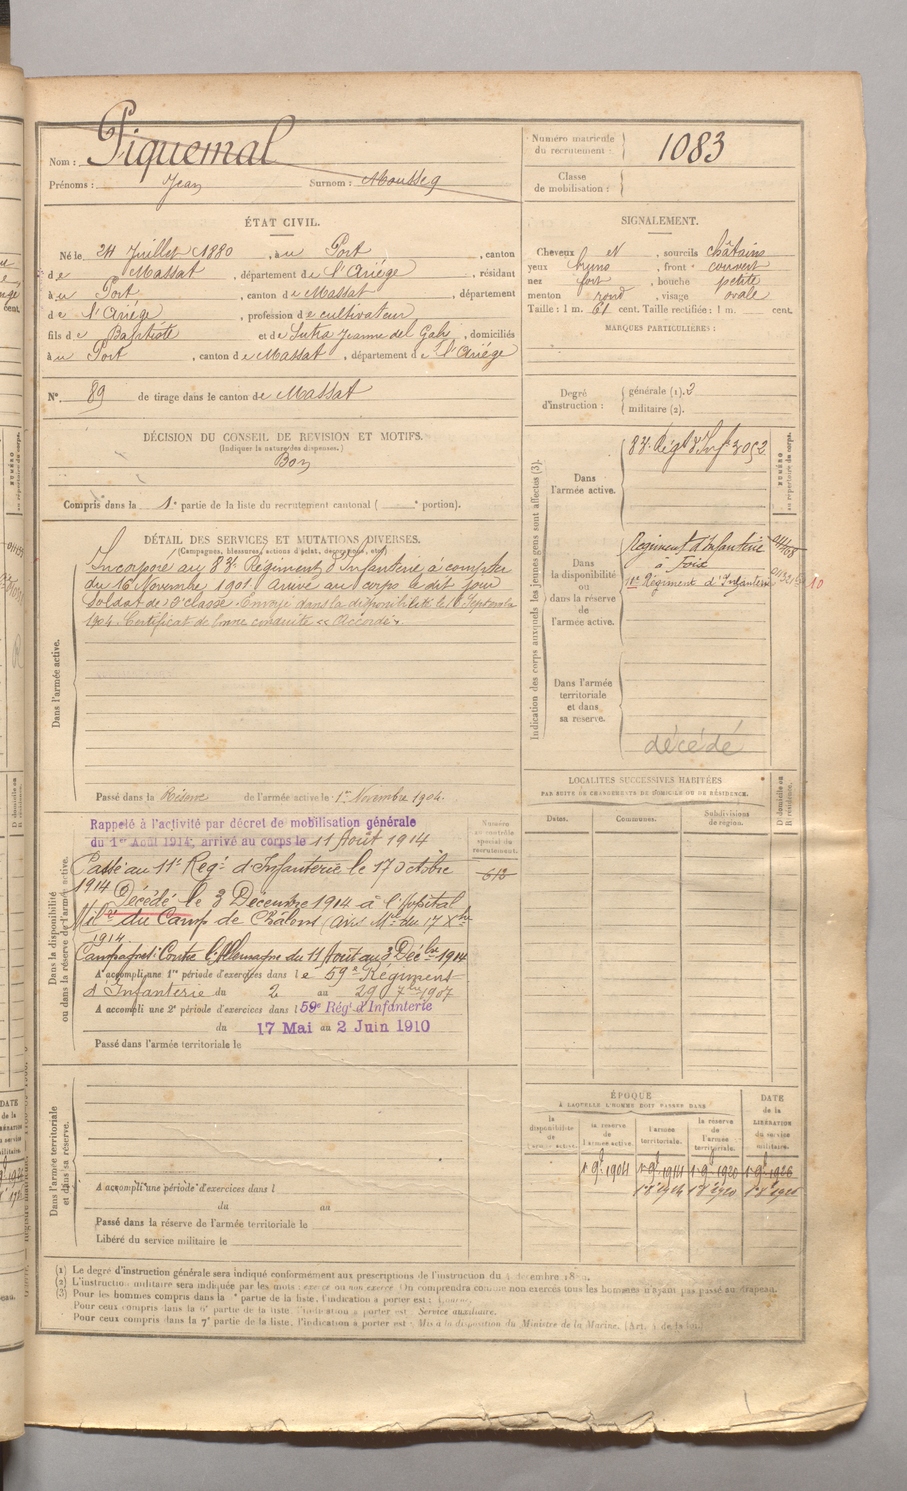 Nom : Piquemal
Prénoms : Jean Surnom : Mousseq
Numéro matricule du recrutement : 1083
Classe de mobilisation :
ÉTAT CIVIL.
Né le 24 Juillet 1880, à u Port, canton
de Massat, département de l'Ariége, résidant
à u Port, canton de Massat, département
de l'Ariége, profession de cultivateur
fils de Baptiste et de Sutra Jeanne del Gabi, domiciliés
à u Port, canton de Massat, département de l'Ariége
N° 89 de tirage dans le canton de Massat
SIGNALEMENT.
Cheveux N, sourcils châtains
yeux bruns, front couvert
nez fort, bouche petite
menton rond, visage ovale
Taille : 1 m. 61 cent. Taille rectifiée : 1 m. cent.
MARQUES PARTICULIÈRES :
Degré d'instruction : générale (1). 3
militaire (2).
DÉCISION DU CONSEIL DE REVISION ET MOTIFS.
(Indiquer la nature des dispenses.)
Bon
Compris dans la 1e partie de la liste du recrutement cantonal ( e portion).
DÉTAIL DES SERVICES ET MUTATIONS DIVERSES.
(Campagnes, blessures, actions d'éclat, décorations, etc.)
Dans l'armée active.
Incorporé au 83e Régiment d'Infanterie à compter
du 16 Novembre 1901. Arrivé au corps le dit jour
Soldat de 2e classe. Envoyé dans la disponibilité le Septembre
1904. Certificat de bonne conduite « Accordé ».
Passé dans la Réserve de l'armée active le 1er Novembre 1904.
Indication des corps auxquels les jeunes gens sont affectés (3).
NUMÉRO au répertoire du corps.
Dans l'armée active.
83e Régt d'Inf 3052
Dans la disponibilité ou dans la réserve de l'armée active.
Régiment d'Infanterie
à Foix
11e Régiment d'Infanterie
Dans l'armée territoriale et dans sa réserve.
décédé
LOCALITÉS SUCCESSIVES HABITÉES
PAR SUITE DE CHANGEMENTS DE DOMICILE OU DE RÉSIDENCE.
Dates. Communes. Subdivisions de région. D. domicile ou R. résidence.
Dans la disponibilité ou dans la réserve de l'armée active.
Numéro au contrôle spécial du recrutement.
612
Rappelé à l'activité par décret de mobilisation générale
du 1er Août 1914, arrivé au corps le 11 Août 1914
Passé au 11e Régt d'Infanterie le 17 Octobre
1914 Décédé le 3 Décembre 1914 à l'hôpital
Milre du Camp de Châlons (avis Mel du 17 Xbre
1914.
Campagnes : Contre l'Allemagne du 11 Août au 3 Décbre 1914
A accompli une 1re période d'exercices dans le 59e Régiment
d'Infanterie du 2 au 29 7bre 1907
A accompli une 2e période d'exercices dans l 59e Régt d'Infanterie
du 17 Mai au 2 Juin 1910
Passé dans l'armée territoriale le
Dans l'armée territoriale et dans sa réserve.
A accompli une période d'exercices dans l
du au
Passé dans la réserve de l'armée territoriale le
Libéré du service militaire le
ÉPOQUE
À LAQUELLE L'HOMME DOIT PASSER DANS
la disponibilité de l'armée active.
la réserve de l'armée active.
l'armée territoriale.
la réserve de l'armée territoriale.
DATE de la LIBÉRATION du service militaire.
1er 9bre 1904 1er 9bre 1914 1er 9bre 1920 1er 9bre 1926
(1) Le degré d'instruction générale sera indiqué conformément aux prescriptions de l'instruction du décembre
(2) L'instruction militaire sera indiquée par les mots : exercé ou non exercé. On comprendra comme non exercés tous les hommes n'ayant pas passé au drapeau.
(3) Pour les hommes compris dans la partie de la liste, l'indication à porter est :
Pour ceux compris dans la 6e partie de la liste, l'indication à porter est : Service auxiliaire.
Pour ceux compris dans la 7e partie de la liste, l'indication à porter est : Mis à la disposition du Ministre de la Marine. (Art. 4 de la loi.)